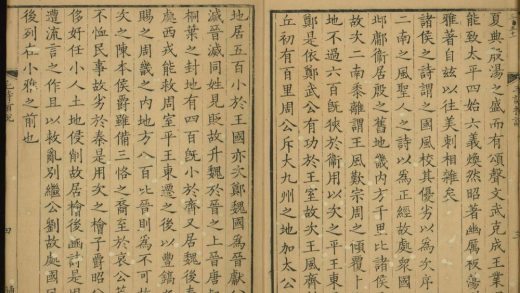 夏典殷湯之盛而有頌聲文武克成王業
能致太平四始六義煥然昭著幽厲板蕩
雅著自兹以往美刺相雜矣
諸侯之詩謂之國風校其優劣以為次序
二南之風聖人之詩以為正經故處衆國
邶鄘衞居殷之舊地畿内方千里比諸侯
故次二南黍離謂王風歎宗周之傾覆
地不過六百既狹於衞用以次之平王東
鄭是依鄭武公有功於王室故次王風齊
丘初有百里周公斥大九州之地加太公
地居五百小於王國亦次鄭魏國為晉獻
滅晉滅同姓見貶故升魏於晉之上晉唐
桐葉之封地有四百既小於齊又居魏後
處西戎能救周室平王東遷之後以豐鎬
賜之周畿之内地方八百比晉則為不可故
次之陳本侯爵雖備三恪之裔至於哀公
不恤民事故劣於秦是用次之檜子爵昭公
侈好任小人土地侵削故居檜後豳詩是
遭流言之作且以敕亂别繼公劉故處國
後列小雅之前也
四